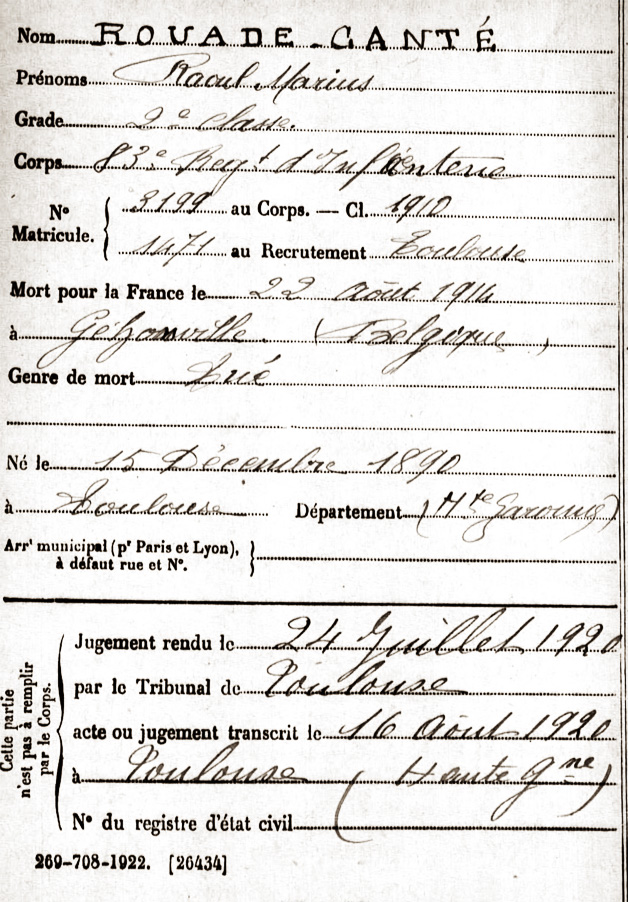 Nom ROUADE-CANTÉ
Prénoms Raoul Marius
Grade 2e classe.
Corps 83e Regt d'Infanterie
No Matricule. { 3199 au Corps. — Cl. 1910
1471 au Recrutement Toulouse
Mort pour la France le 22 août 1914
à Géhonville. (Belgique)
Genre de mort Tué
Né le 15 Décembre 1890
à Toulouse Département (Hte Garonne)
Arrt municipal (pr Paris et Lyon),
à défaut rue et No.
Cette partie
n'est pas à remplir
par le Corps.
Jugement rendu le 24 Juillet 1920
par le Tribunal de Toulouse
acte ou jugement transcrit le 16 Août 1920
à Toulouse (Haute Gne)
No du registre d'état civil
269-708-1922. [26434]